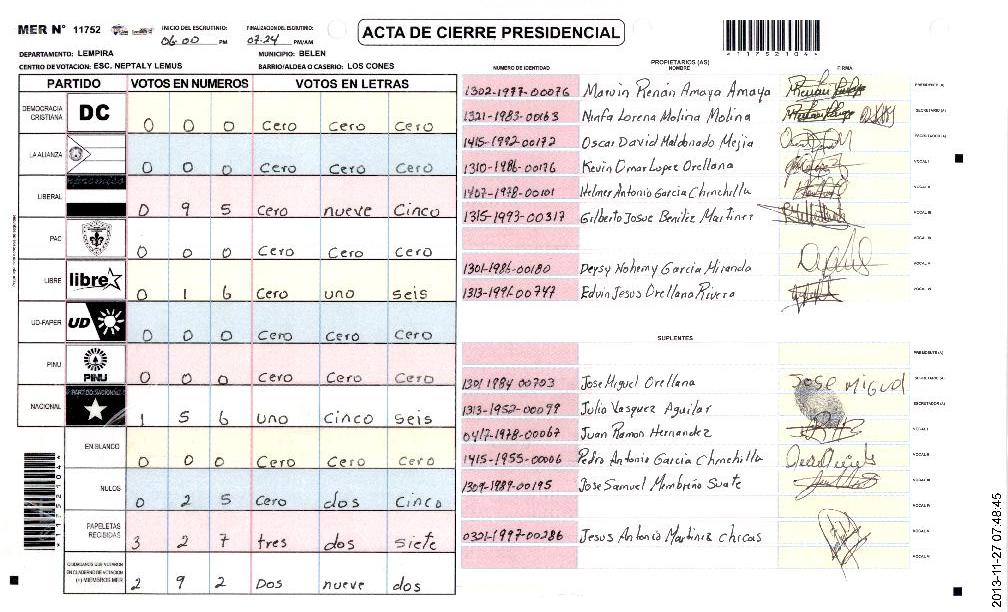 MER N° 11752
INICIO DEL ESCRUTINIO: 06:00 PM
FINALIZACION DEL ESCRUTINIO: 07:24 PM/AM
ACTA DE CIERRE PRESIDENCIAL
*11752104*
DEPARTAMENTO: LEMPIRA
MUNICIPIO: BELEN
CENTRO DE VOTACION: ESC. NEPTALY LEMUS
BARRIO/ALDEA O CASERIO: LOS CONES
PARTIDO VOTOS EN NUMEROS VOTOS EN LETRAS
DEMOCRACIA CRISTIANA DC 0 0 0 Cero Cero Cero
LA ALIANZA 0 0 0 Cero Cero Cero
LIBERAL 0 9 5 Cero nueve Cinco
PAC 0 0 0 Cero Cero Cero
LIBRE libre 0 1 6 Cero uno seis
UD-FAPER UD 0 0 0 Cero Cero Cero
PINU PINU 0 0 0 Cero Cero Cero
NACIONAL 1 5 6 uno Cinco seis
EN BLANCO 0 0 0 Cero Cero Cero
NULOS 0 2 5 Cero dos Cinco
PAPELETAS RECIBIDAS 3 2 7 tres dos siete
CIUDADANOS QUE VOTARON EN CUADERNO DE VOTACION (+) MIEMBROS MER 2 9 2 Dos nueve dos
*11752104*
PROPIETARIOS (AS)
NUMERO DE IDENTIDAD NOMBRE FIRMA
1302-1977-00076 Marvin Renán Amaya Amaya PRESIDENTE (A)
1321-1983-00163 Ninfa Lorena Molina Molina SECRETARIO (A)
1415-1992-00172 Oscar David Maldonado Mejia ESCRUTADOR (A)
1310-1986-00176 Kevin Omar Lopez Orellana VOCAL I
1407-1978-00101 Helmer Antonio Garcia Chinchilla VOCAL II
1315-1993-00317 Gilberto Josue Benitez Martinez VOCAL III
VOCAL IV
1301-1986-00180 Deysy Nohemy Garcia Miranda VOCAL V
1313-1996-00747 Edvin Jesus Orellana Rivera VOCAL VI
SUPLENTES
PRESIDENTE (A)
1301 1984 00703 Jose Miguel Orellana JOSE MIGUEL SECRETARIO (A)
1313-1952-00099 Julio Vasquez Aguilar ESCRUTADOR (A)
0417-1978-00067 Juan Ramon Hernandez VOCAL I
1415-1955-00006 Pedro Antonio Garcia Chinchilla VOCAL II
1309-1989-00195 Jose Samuel Membreño Suate VOCAL III
VOCAL IV
0321-1997-00286 Jesus Antonio Martinez chicas VOCAL V
VOCAL VI
2013-11-27 07:48:45